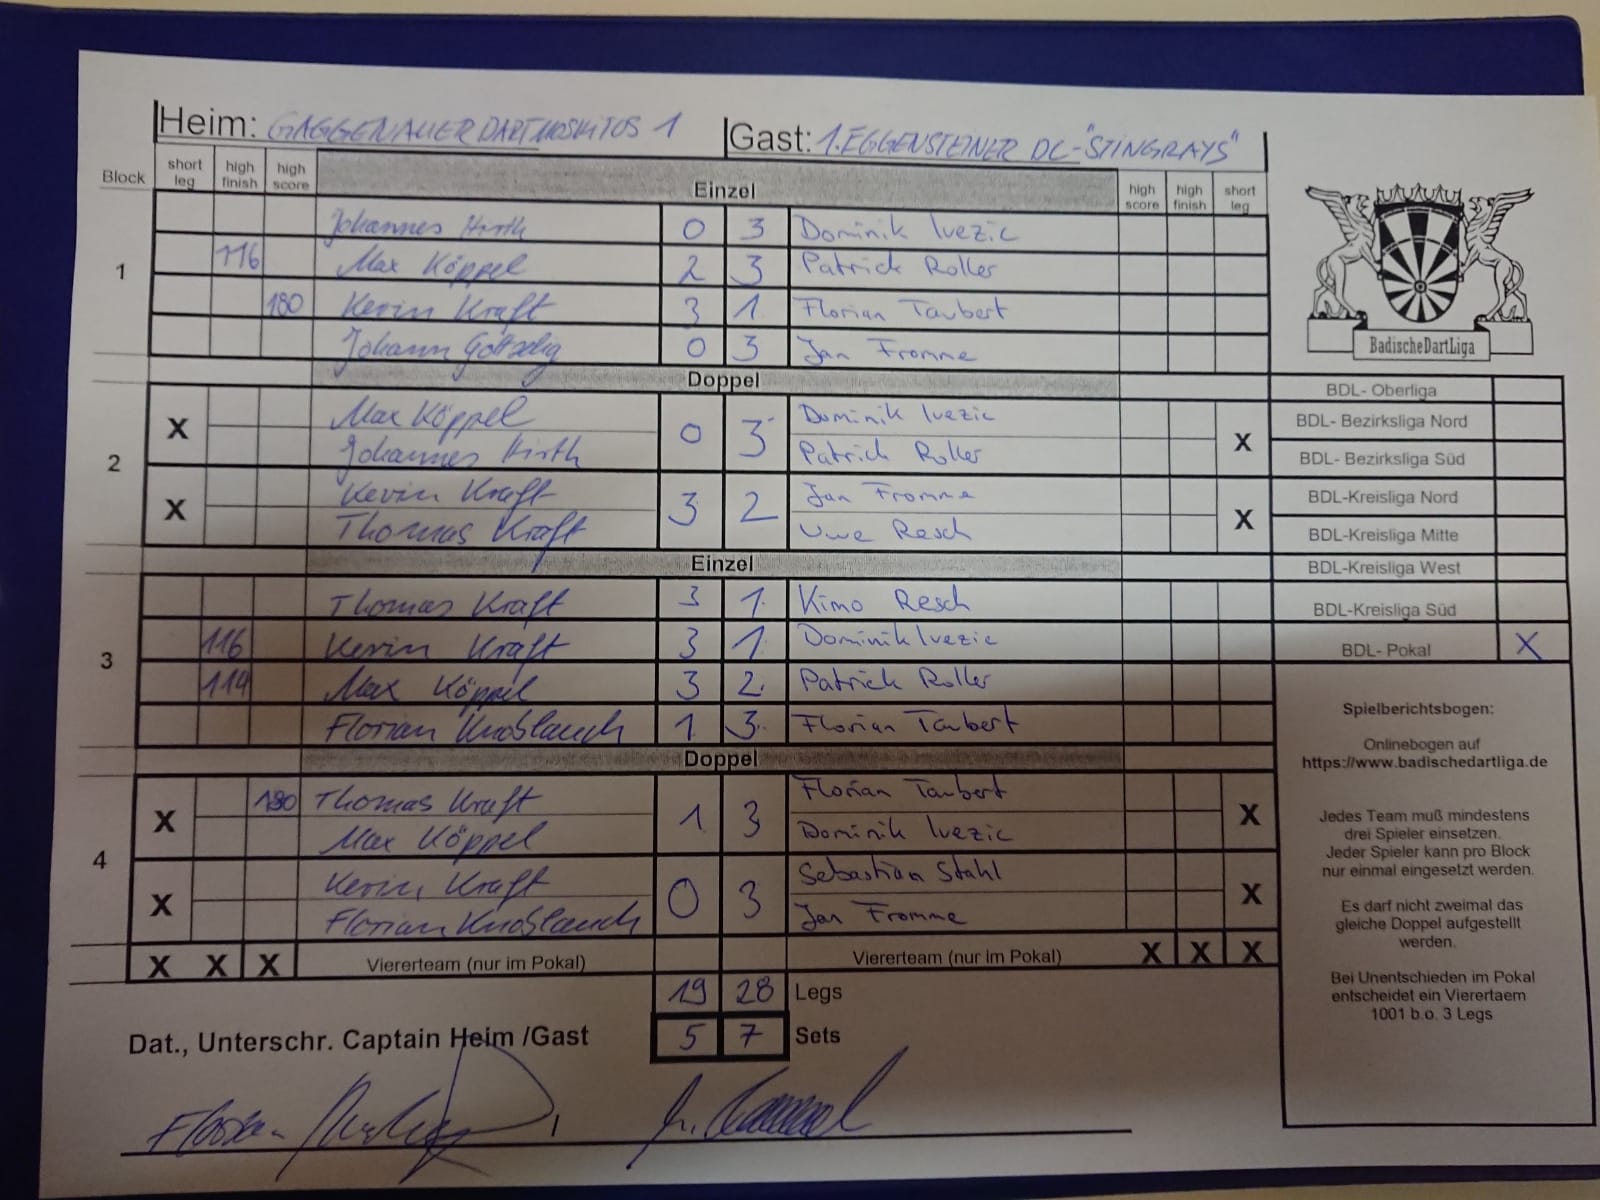 Heim: GAGGENAUER DARTMOSKITOS 1 Gast: 1. EGGENSTEINER DC-"STINGRAYS"
Block short leg high finish high score Einzel high score high finish short leg
1
Johannes Hirth 0 3 Dominik Ivezic
116 Max Köppel 2 3 Patrick Roller
180 Kevin Kraft 3 1 Florian Taubert
Johann Gottselig 0 3 Jan Fromme
BadischeDartLiga
Doppel
2
X Max Köppel 0 3 Dominik Ivezic X
Johannes Hirth Patrick Roller
X Kevin Kraft 3 2 Jan Fromme X
Thomas Kraft Uwe Resch
Einzel
3
Thomas Kraft 3 1 Kimo Resch
116 Kevin Kraft 3 1 Dominik Ivezic
114 Max Köppel 3 2 Patrick Roller
Florian Knoblauch 1 3 Florian Taubert
Doppel
4
X 180 Thomas Kraft 1 3 Florian Taubert X
Max Köppel Dominik Ivezic
X Kevin Kraft 0 3 Sebastian Stahl X
Florian Knoblauch Jan Fromme
X X X Viererteam (nur im Pokal) Viererteam (nur im Pokal) X X X
19 28 Legs
5 7 Sets
Dat., Unterschr. Captain Heim /Gast
Florian
BDL- Oberliga
BDL- Bezirksliga Nord
BDL- Bezirksliga Süd
BDL-Kreisliga Nord
BDL-Kreisliga Mitte
BDL-Kreisliga West
BDL-Kreisliga Süd
BDL- Pokal X
Spielberichtsbogen:
Onlinebogen auf
https://www.badischedartliga.de
Jedes Team muß mindestens
drei Spieler einsetzen.
Jeder Spieler kann pro Block
nur einmal eingesetzt werden.
Es darf nicht zweimal das
gleiche Doppel aufgestellt
werden.
Bei Unentschieden im Pokal
entscheidet ein Vierertaem
1001 b.o. 3 Legs